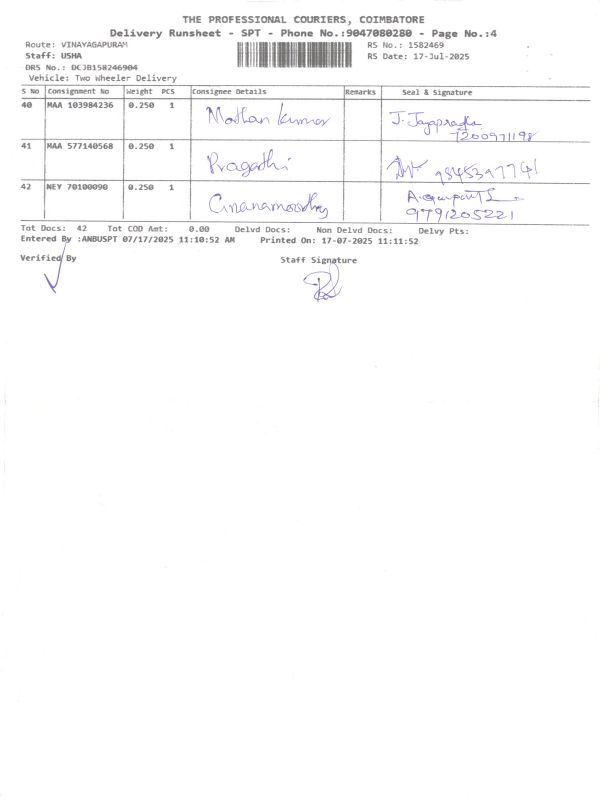 THE PROFESSIONAL COURIERS, COIMBATORE
Delivery Runsheet - SPT - Phone No.:9047080280 - Page No.:4
Route: VINAYAGAPURAM RS No.: 1582469
Staff: USHA RS Date: 17-Jul-2025
DRS No.: DCJB158246904
Vehicle: Two Wheeler Delivery
S No Consignment No Weight PCS Consignee Details Remarks Seal & Signature
40 MAA 103984236 0.250 1 Mathan kumar J. Jayapradha
7200971198
41 MAA 577140568 0.250 1 Pragathi
42 NEY 70100090 0.250 1 Gnanamoorthy
9791205221
Tot Docs: 42 Tot COD Amt: 0.00 Delvd Docs: Non Delvd Docs: Delvy Pts:
Entered By :ANBUSPT 07/17/2025 11:10:52 AM Printed On: 17-07-2025 11:11:52
Verified By Staff Signature